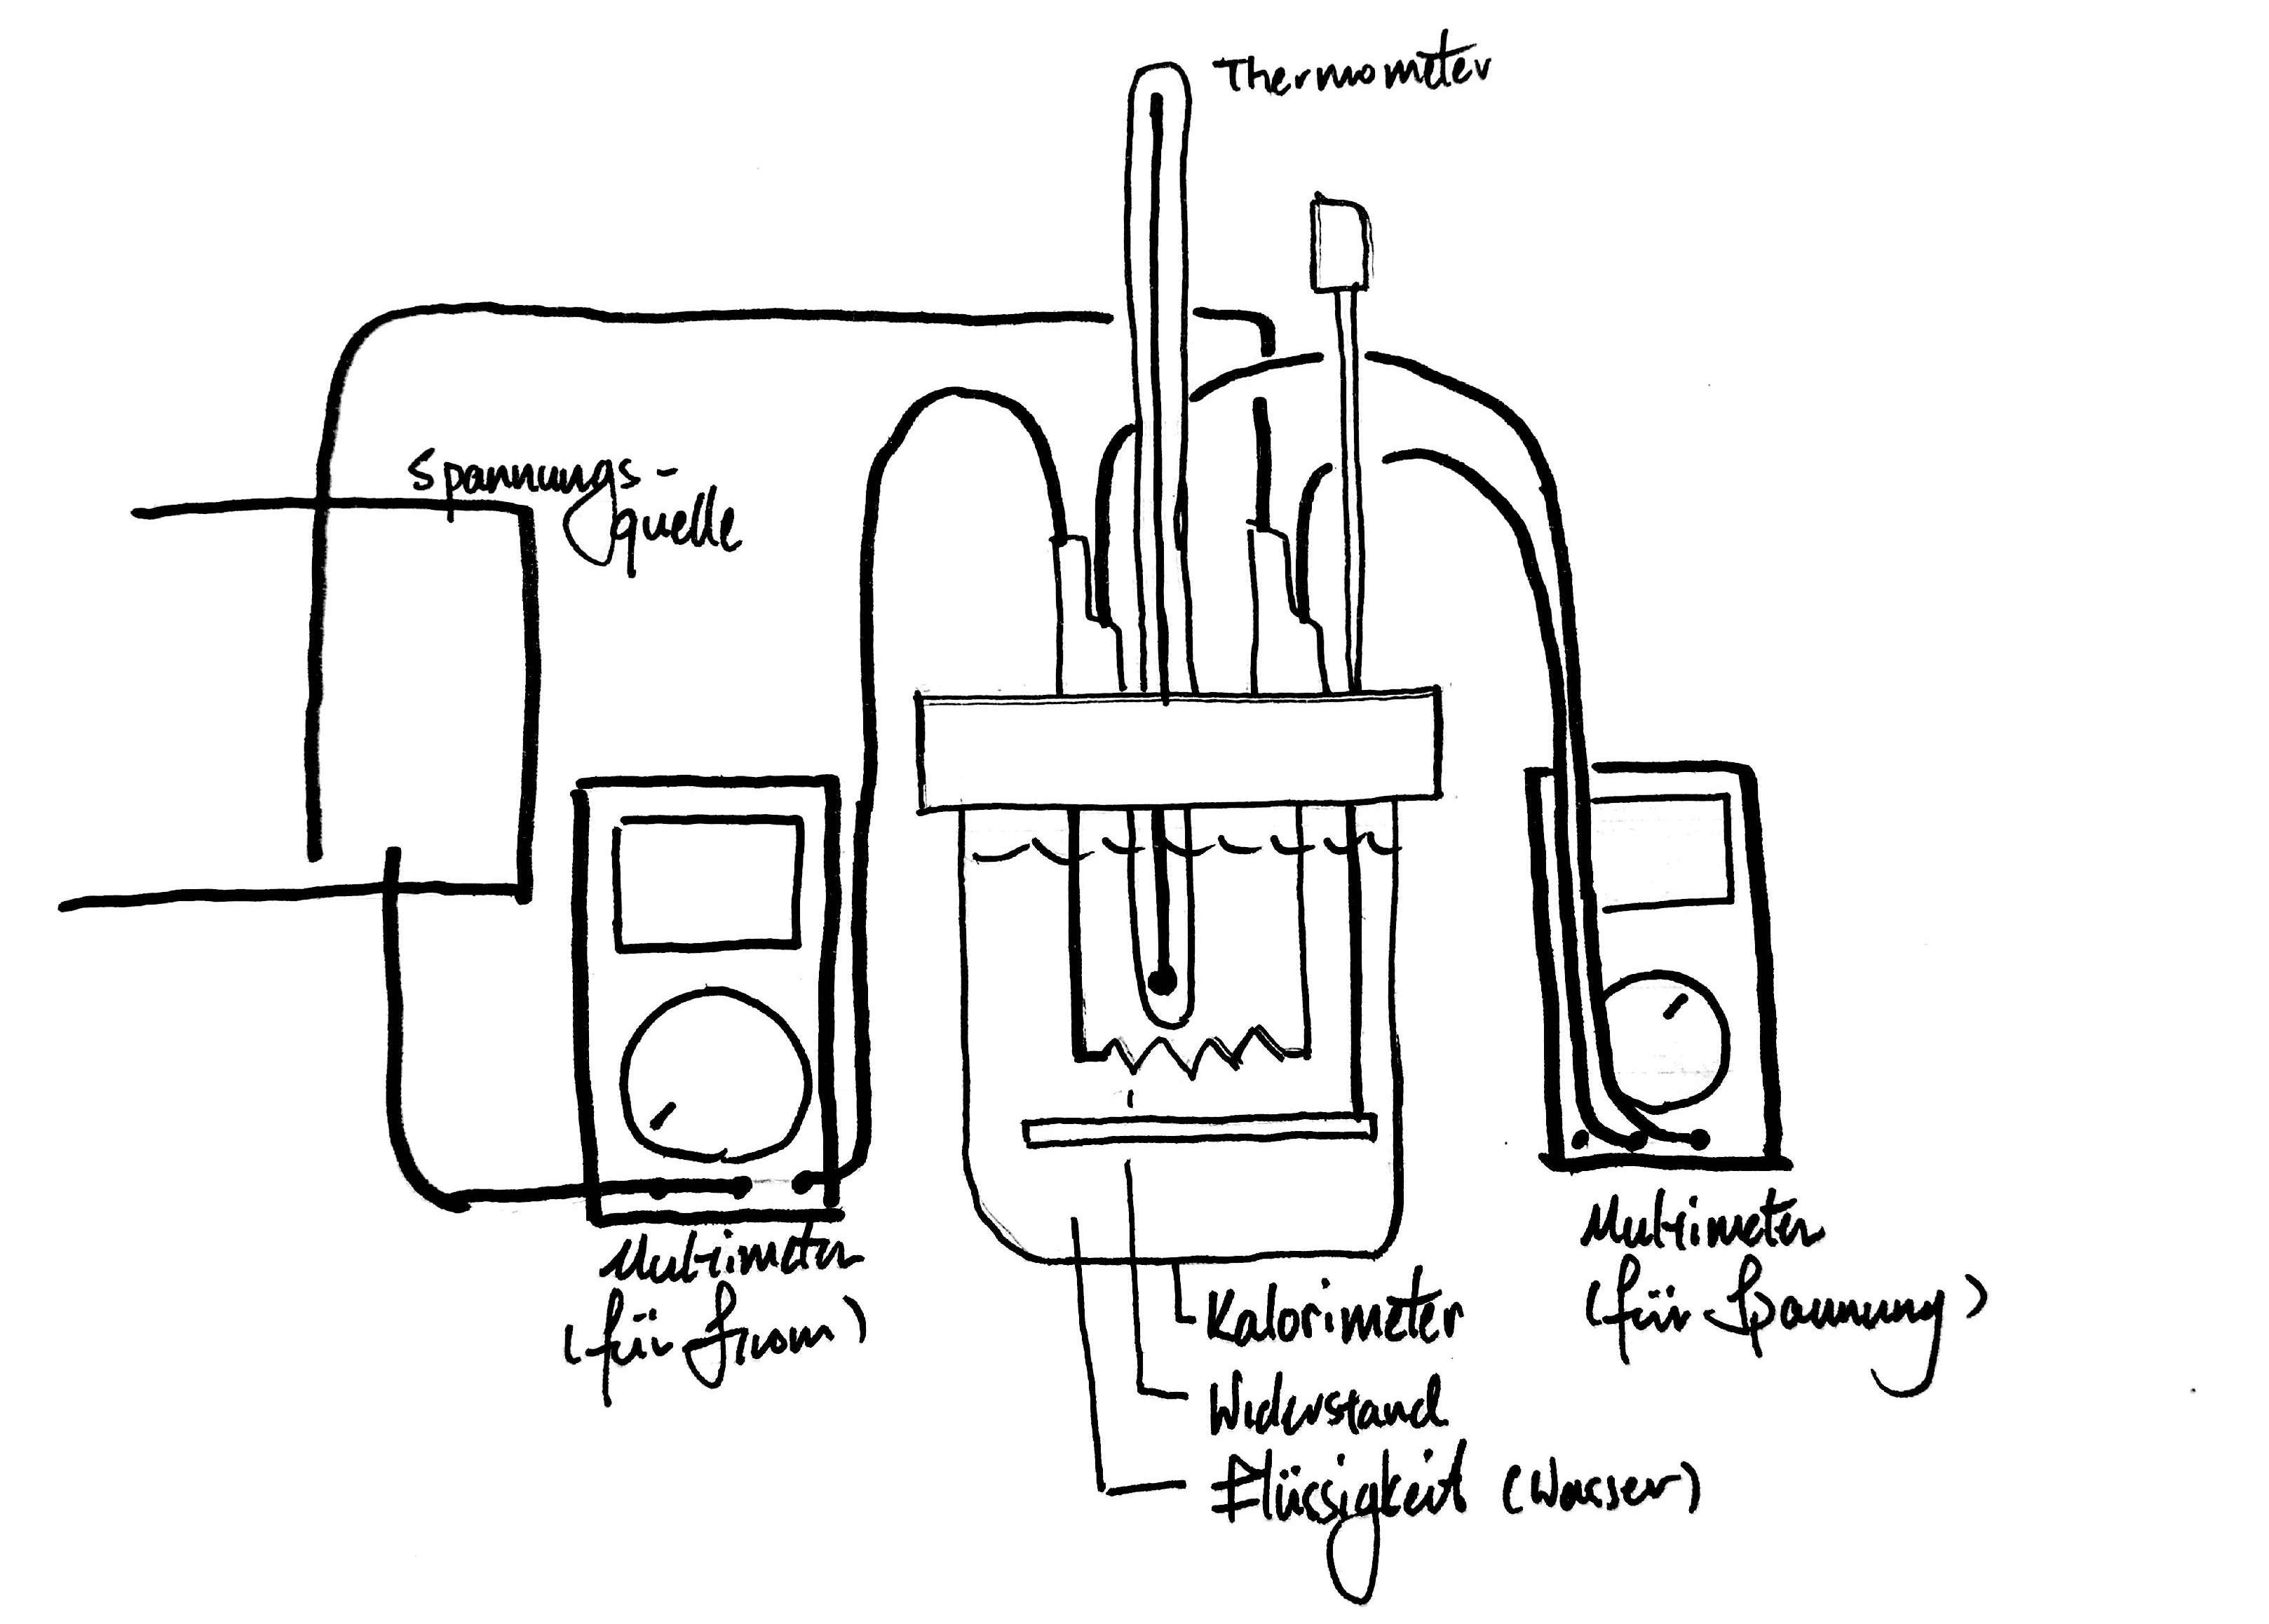 Thermometer
Spannungs-
quelle
Multimeter
(für Strom)
Multimeter
(für Spannung)
Kalorimeter
Widerstand
Flüssigkeit (Wasser)